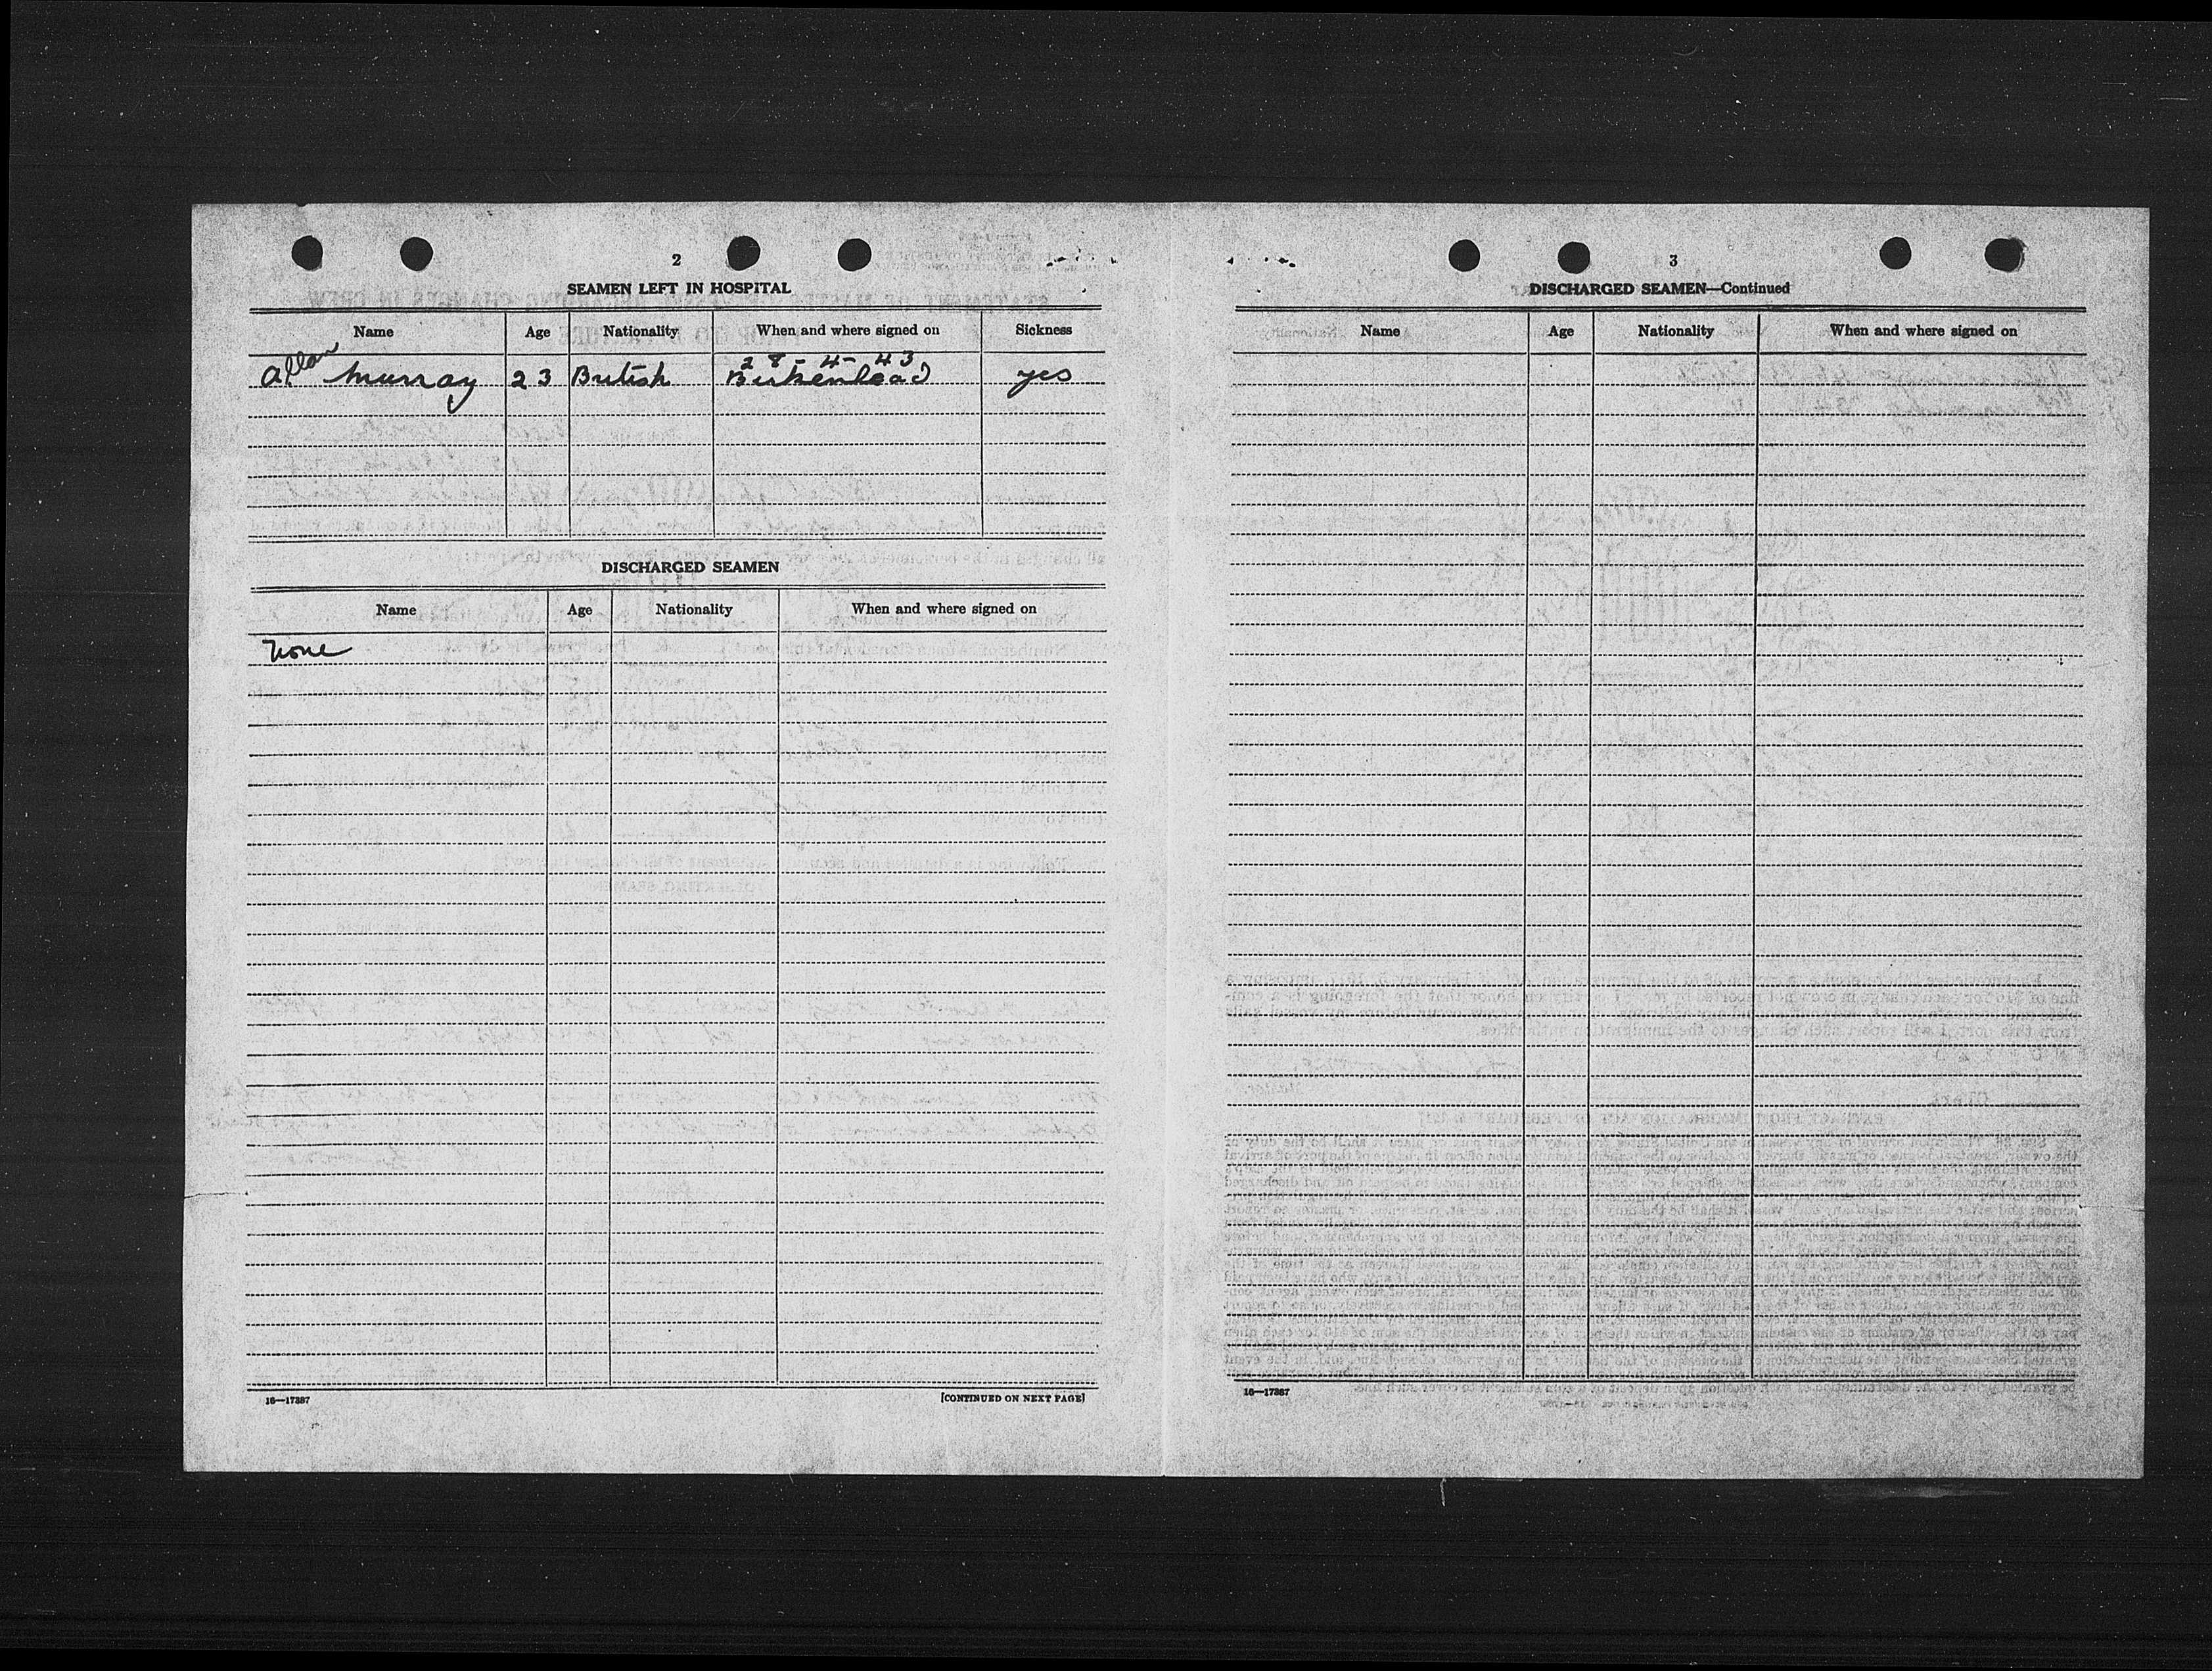 2
SEAMEN LEFT IN HOSPITAL
Name Age Nationality When and where signed on Sickness
Allan Murray 23 British 28-4-43 Birkenhead yes
DISCHARGED SEAMEN
Name Age Nationality When and where signed on
None
16—17387 [CONTINUED ON NEXT PAGE]
3
DISCHARGED SEAMEN—Continued
Name Age Nationality When and where signed on
16—17387